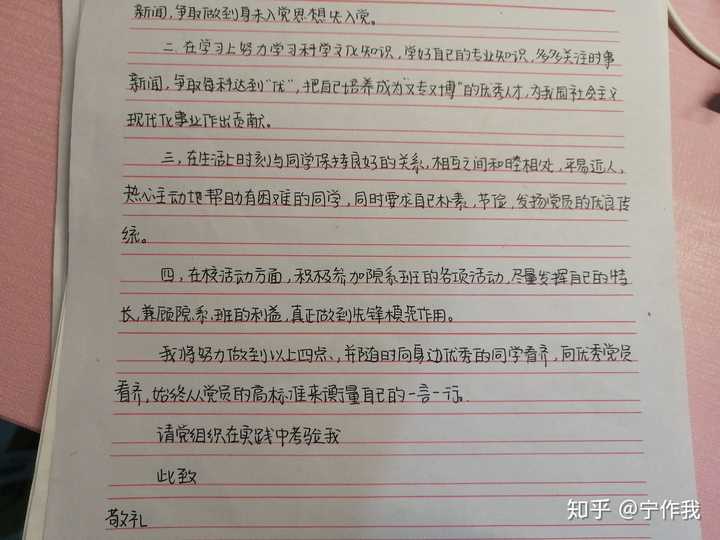 新闻，争取做到身未入党思想先入党。
二、在学习上努力学习科学文化知识，学好自己的专业知识，多多关注时事
新闻，争取每科达到“优”，把自己培养成为“又专又博”的优秀人才，为我国社会主义
现代化事业作出贡献。
三，在生活上时刻与同学保持良好的关系，相互之间和睦相处，平易近人，
热心主动地帮助有困难的同学，同时要求自己朴素，节俭，发扬党员的优良传
统。
四，在校活动方面，积极参加院系班的各项活动，尽量发挥自己的特
长，兼顾院、系、班的利益，真正做到先锋模范作用。
我将努力做到以上四点、，并随时向身边优秀的同学看齐，向优秀党员
看齐，始终从党员的高标准来衡量自己的一言一行。
请党组织在实践中考验我
此致
敬礼
知乎 @宁作我